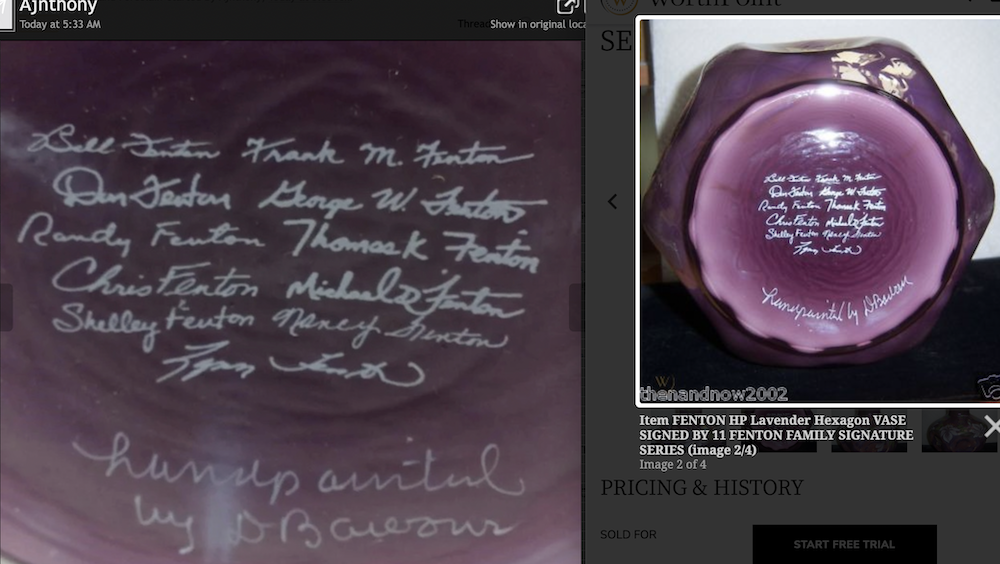 Ajnthony
Today at 5:33 AM
Thread
Show in original loca
Bill Fenton Frank M. Fenton
Don Fenton George W. Fenton
Randy Fenton Thomas K Fenton
Chris Fenton Michael D Fenton
Shelley Fenton Nancy Fenton
Lynn Fenton
handpainted
by D Barbour
WorthPoint
SE
Bill Fenton Frank M. Fenton
Don Fenton George W. Fenton
Randy Fenton Thomas K Fenton
Chris Fenton Michael D Fenton
Shelley Fenton Nancy Fenton
Lynn Fenton
handpainted by D Barbour
W
thenandnow2002
Item FENTON HP Lavender Hexagon VASE
SIGNED BY 11 FENTON FAMILY SIGNATURE
SERIES (image 2/4)
Image 2 of 4
PRICING & HISTORY
SOLD FOR
START FREE TRIAL